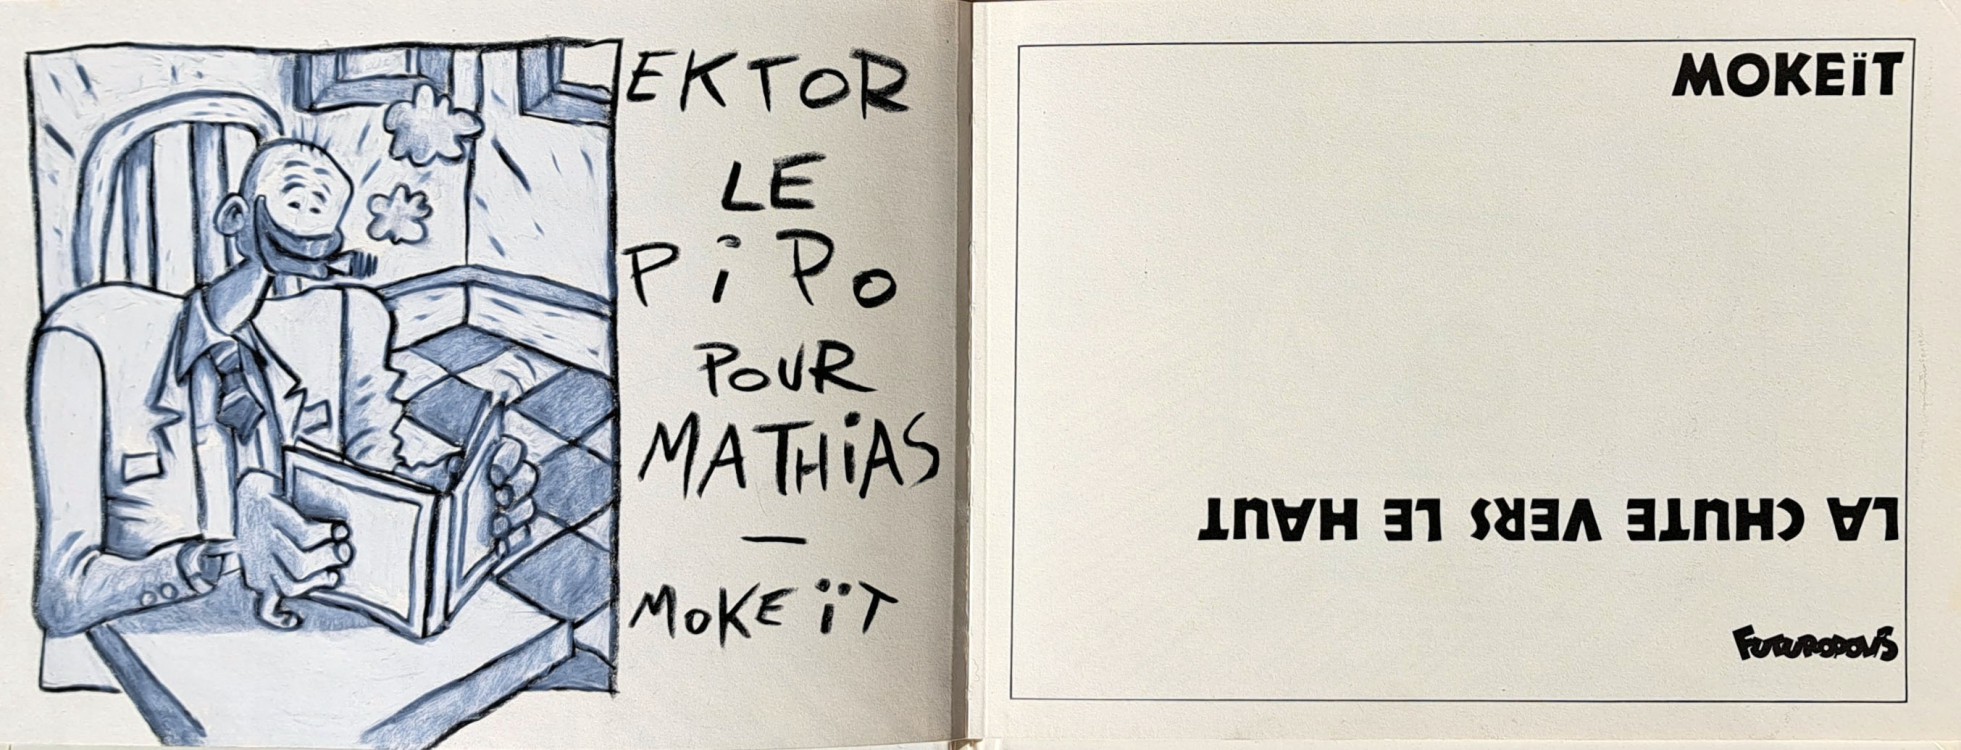 EKTOR
LE
PiPo
POUR
MATHiAS
—
MOKEïT
MOKEïT
LA CHUTE VERS LE HAUT
FUTUROPOLIS